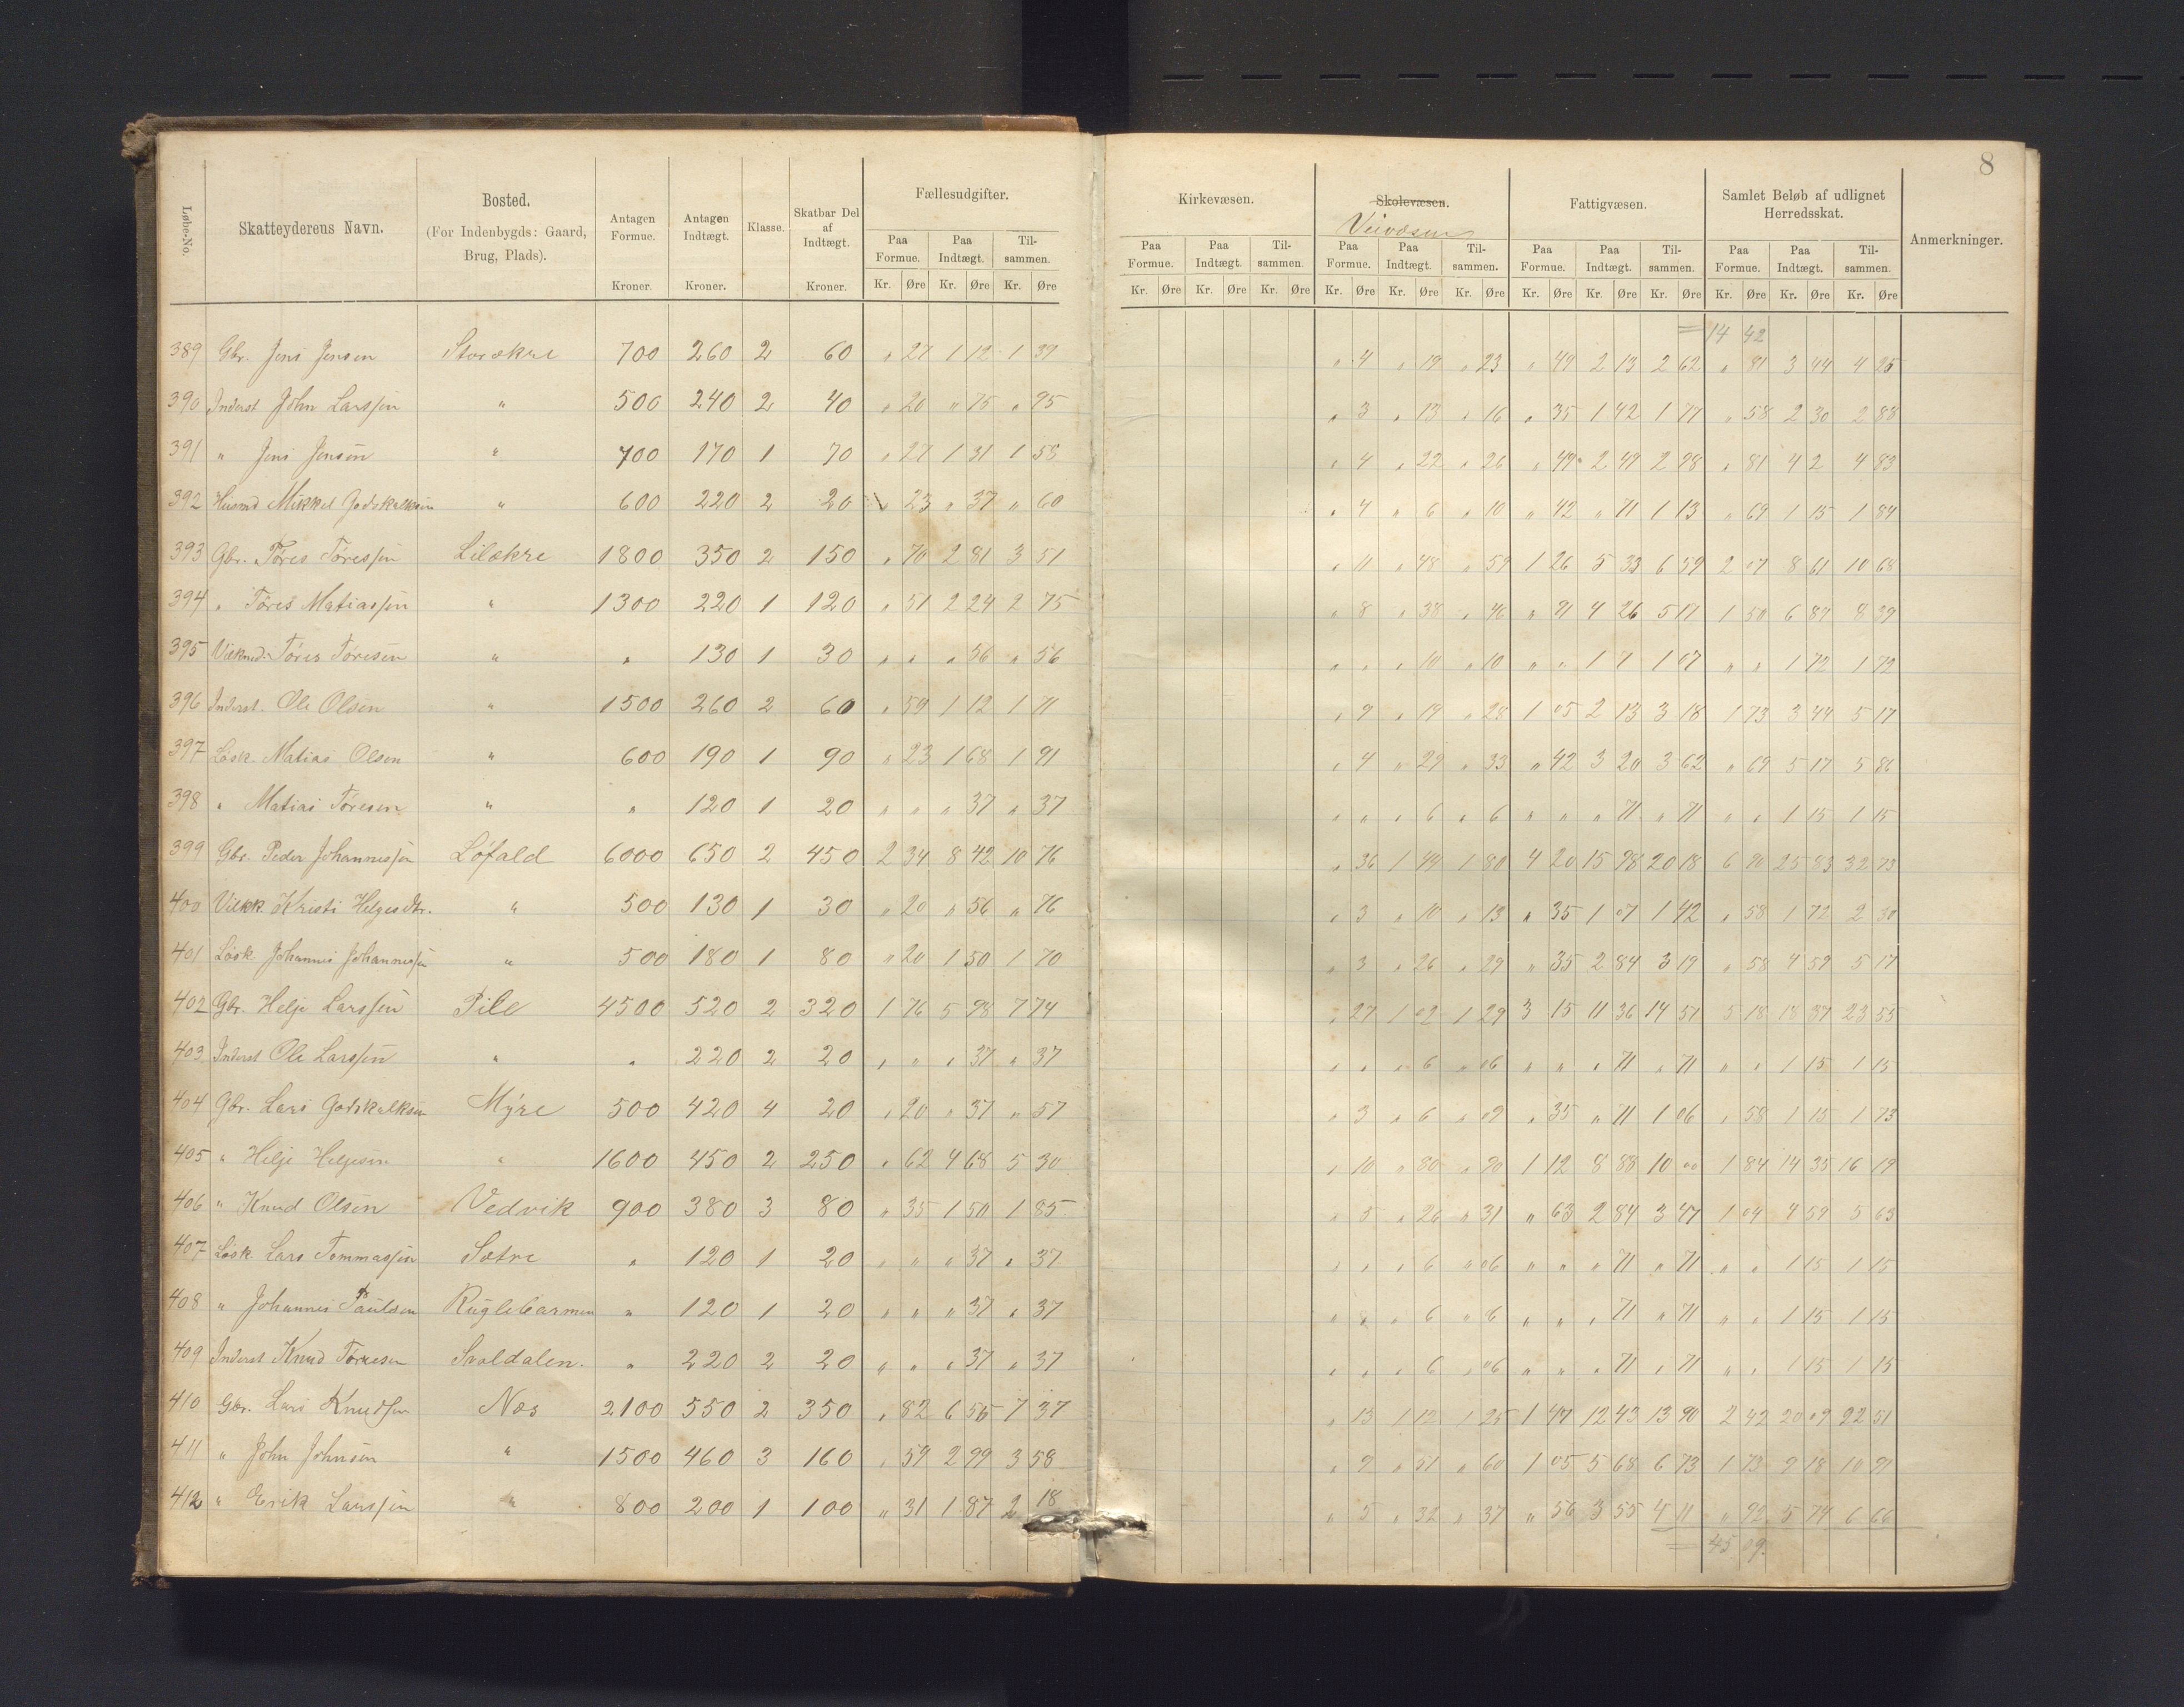 8
Løbe-No. Skatteyderens Navn. Bosted. (For Indenbygds: Gaard, Brug, Plads). Antagen Formue. Kroner. Antagen Indtægt. Kroner. Klasse. Skatbar Del af Indtægt. Kroner. Fællesudgifter. Paa Formue. Paa Indtægt. Tilsammen. Kr. Øre Kr. Øre Kr. Øre
Kirkevæsen. Paa Formue. Paa Indtægt. Tilsammen. Kr. Øre Kr. Øre Kr. Øre Skolevæsen. Veivæsen Paa Formue. Paa Indtægt. Tilsammen. Kr. Øre Kr. Øre Kr. Øre Fattigvæsen. Paa Formue. Paa Indtægt. Tilsammen. Kr. Øre Kr. Øre Kr. Øre Samlet Beløb af udlignet Herredsskat. Paa Formue. Paa Indtægt. Tilsammen. Kr. Øre Kr. Øre Kr. Øre Anmerkninger.
= 14 42
389 Gbr. Jens Jensen Storækre 700 260 2 60 " 27 1 12 1 39 " 4 " 19 " 23 " 49 2 13 2 62 " 81 3 44 4 25
390 Inderst John Larssen " 500 240 2 40 " 20 " 75 " 95 " 3 " 13 " 16 " 35 1 42 1 77 " 58 2 30 2 88
391 " Jens Jensen " 700 170 1 70 " 27 1 31 1 58 " 4 " 22 " 26 " 49 2 49 2 98 " 81 4 2 4 83
392 Husmd Mikkel Godskalksen " 600 220 2 20 " 23 " 37 " 60 " 4 " 6 " 10 " 42 " 71 1 13 " 69 1 15 1 84
393 Gbr. Tøres Tøressen Lilækre 1800 350 2 150 " 70 2 81 3 51 " 11 " 48 " 59 1 26 5 33 6 59 2 07 8 61 10 68
394 " Tøres Matiassen " 1300 220 1 120 " 51 2 24 2 75 " 8 " 38 " 46 " 91 4 26 5 17 1 50 6 89 8 39
395 Vilkmd. Tøres Tøresen " " 130 1 30 " " " 56 " 56 " " " 10 " 10 " " 1 7 1 07 " " 1 72 1 72
396 Inderst. Ole Olsen " 1500 260 2 60 " 59 1 12 1 71 " 9 " 19 " 28 1 05 2 13 3 18 1 73 3 44 5 17
397 Løsk. Matias Olsen " 600 190 1 90 " 23 1 68 1 91 " 4 " 29 " 33 " 42 3 20 3 62 " 69 5 17 5 86
398 " Matias Tøresen " " 120 1 20 " " " 37 " 37 " " " 6 " 6 " " " 71 " 71 " " 1 15 1 15
399 Gbr. Peder Johannessen Løfald 6000 650 2 450 2 34 8 42 10 76 " 36 1 44 1 80 4 20 15 98 20 18 6 90 25 83 32 73
400 Vilkk. Kristi Helgesdtr. " 500 130 1 30 " 20 " 56 " 76 " 3 " 10 " 13 " 35 1 07 1 42 " 58 1 72 2 30
401 Løsk. Johannes Johannessen " 500 180 1 80 " 20 1 50 1 70 " 3 " 26 " 29 " 35 2 84 3 19 " 58 4 59 5 17
402 Gbr. Helje Larssen Pile 4500 520 2 320 1 76 5 98 7 74 " 27 1 02 1 29 3 15 11 36 14 51 5 18 18 37 23 55
403 Inderst Ole Larssen " " 220 2 20 " " " 37 " 37 " " " 6 " 06 " " " 71 " 71 " " 1 15 1 15
404 Gbr. Lars Godskalksen Myre 500 420 4 20 " 20 " 37 " 57 " 3 " 6 " 09 " 35 " 71 1 06 " 58 1 15 1 73
405 " Helje Heljesen " 1600 450 2 250 " 62 4 68 5 30 " 10 " 80 " 90 1 12 8 88 10 00 1 84 14 35 16 19
406 " Knud Olsen Vedvik 900 380 3 80 " 35 1 50 1 85 " 5 " 26 " 31 " 63 2 84 3 47 1 04 4 59 5 63
407 Løsk. Lars Tommassen Sætre " 120 1 20 " " " 37 " 37 " " " 6 " 06 " " " 71 " 71 " " 1 15 1 15
408 " Johannes Paulsen Ruglebarmen " 120 1 20 " " " 37 " 37 " " " 6 " 6 " " " 71 " 71 " " 1 15 1 15
409 Inderst Knud Tøresen Svaldalen. " 220 2 20 " " " 37 " 37 " " " 6 " 06 " " " 71 " 71 " " 1 15 1 15
410 Gbr. Lars Knudsen Næs 2100 550 2 350 " 82 6 55 7 37 " 13 1 12 1 25 1 47 12 43 13 90 2 42 20 09 22 51
411 " John Johnsen " 1500 460 3 160 " 59 2 99 3 58 " 9 " 51 " 60 1 05 5 68 6 73 1 73 9 18 10 91
412 " Erik Larssen " 800 200 1 100 " 31 1 87 2 18 " 5 " 32 " 37 " 56 3 55 4 11 " 92 5 74 6 66
= 45 09.